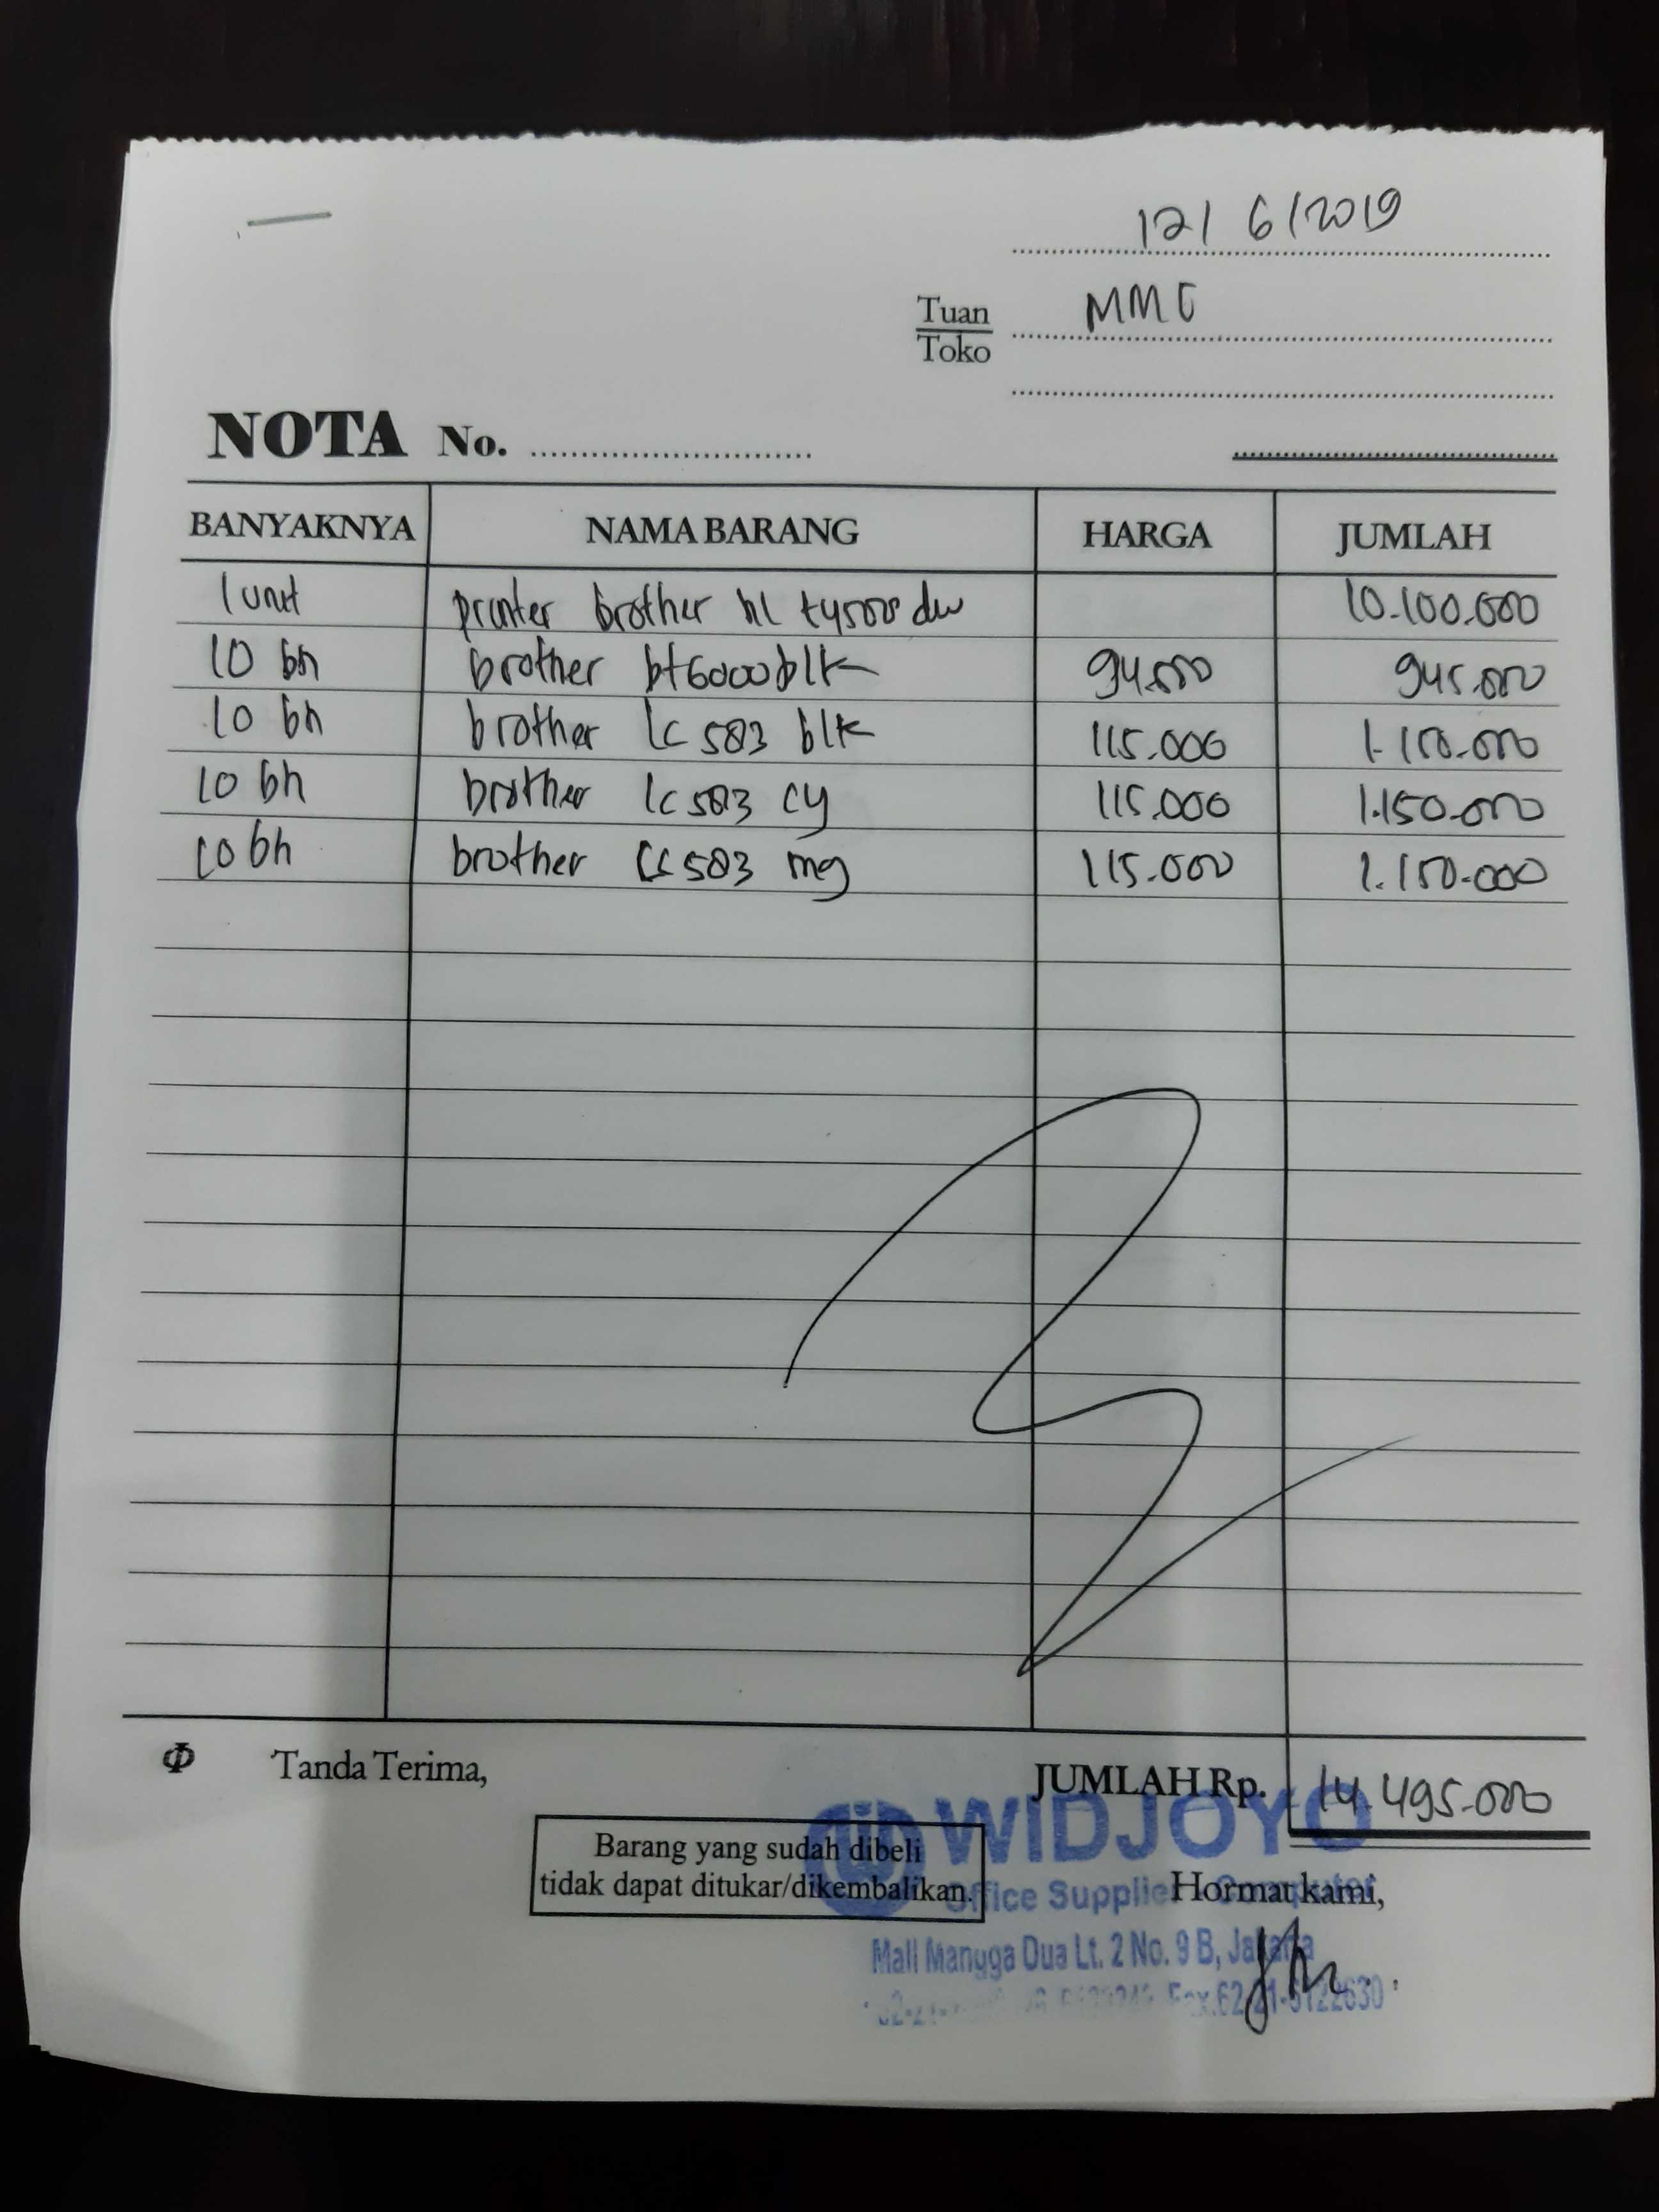 12/ 6/2019
Tuan MMC
Toko
NOTA No.
BANYAKNYA NAMA BARANG HARGA JUMLAH
1 unit printer brother hl t4500 dw 10.100.000
10 bh brother bt6000 blk 94.500 945.000
10 bh brother lc 583 blk 115.000 1.150.000
10 bh brother lc 583 cy 115.000 1.150.000
10 bh brother lc 583 mg 115.000 1.150.000
Tanda Terima, JUMLAH Rp. 14.495.000
WIDJOYO
Barang yang sudah dibeli
tidak dapat ditukar/dikembalikan.
Office Supplies Computer
Hormat kami,
Mall Mangga Dua Lt. 2 No. 9 B, Jakarta
Fax.62-21-6122630